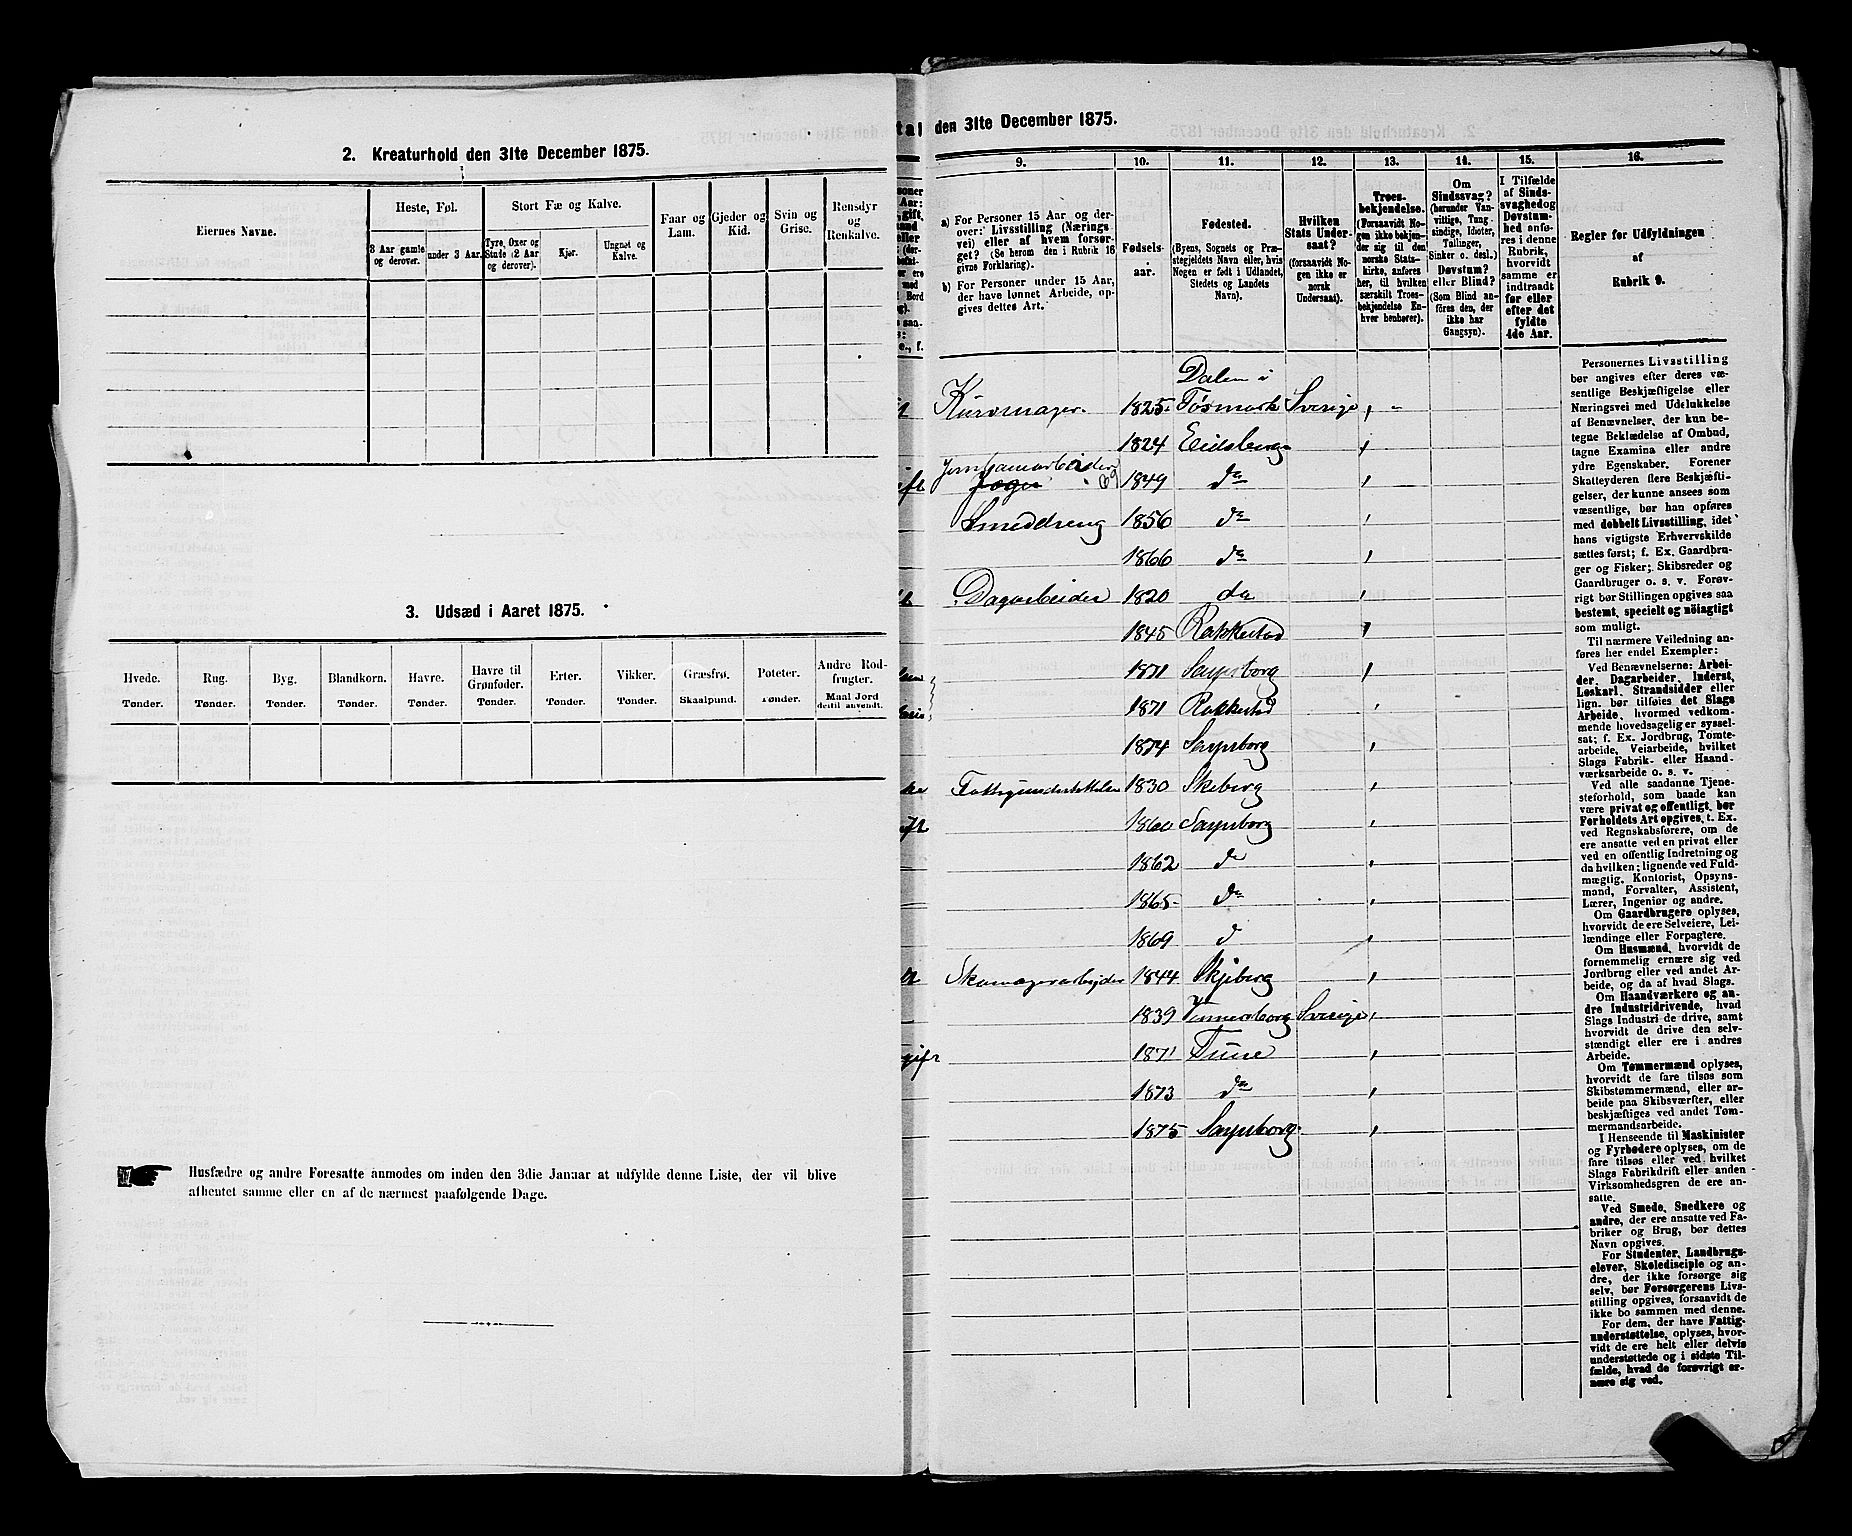 2. Kreaturhold den 31te December 1875.
Eiernes Navne.
Heste, Føl.
Stort Fæ og Kalve.
Faar og Lam.
Gjeder og Kid.
Svin og Grise.
Rensdyr og Renkalve.
3 Aar gamle og derover.
under 3 Aar.
Tyre, Oxer og Stude (2 Aar og derover).
Kjør.
Ungnøt og Kalve.
3. Udsæd i Aaret 1875.
Hvede. Rug. Byg. Blandkorn. Havre. Havre til Grønfoder. Erter. Vikker. Græsfrø. Poteter. Andre Rodfrugter.
Tønder. Tønder. Tønder. Tønder. Tønder. Tønder. Tønder. Tønder. Skaalpund. Tønder. Maal Jord dertil anvendt.
Husfædre og andre Foresatte anmodes om inden den 3die Januar at udfylde denne Liste, der vil blive
afhentet samme eller en af de nærmest paafølgende Dage.
tal den 31te December 1875.
9. 10. 11. 12. 13. 14. 15. 16.
a) For Personer 15 Aar og derover: Livsstilling (Næringsvei) eller af hvem forsørget? (Se herom den i Rubrik 16 givne Forklaring).
b) For Personer under 15 Aar, der have lønnet Arbeide, opgives dettes Art.
Fødselsaar.
Fødested.
(Byens, Sognets og Præstegjeldets Navn eller, hvis Nogen er født i Udlandet, Stedets og Landets Navn).
Hvilken Stats Undersaat?
(forsaavidt Nogen ikke er norsk Undersaat).
Troesbekjendelse.
(Forsaavidt Nogen ikke bekjender sig til den norske Statskirke, anføres her, til hvilken særskilt Troesbekjendelse Enhver henhører).
Om Sindssvag?
(herunder Vanvittige, Tungsindige, Idioter, Tullinger, Sinker o. desl.)
Døvstum? eller Blind?
(Som Blind anføres den, der ikke har Gangsyn).
I Tilfælde af Sindssvaghed og Døvstumhed anføres i denne Rubrik, hvorvidt samme er indtraadt før eller efter det fyldte 4de Aar.
Regler for Udfyldningen
af
Rubrik 9.
Dalen i
Kurvmager. 1825. Tøsmark Sverige
1824 Eidsberg
Jernbanearbeider
1849 da
Smeddreng 1856 da
1866 da
Dagarbeider 1820 da
1845 Rakkestad
1871 Sarpsborg
1871 Rakkestad
1874 Sarpsborg
Fattigunderstøttelse 1830 Skeberg
1860 Sarpsborg
1862 d
1865 da
1869 d
Skomagerarbejder 1844 Skjeberg
1839 Vennersborg Sverige
1871 Tune
1873 da
1875 Sarpsborg.
Personernes Livsstilling
bør angives efter deres væsentlige
Beskjæftigelse eller
Næringsvei med Udelukkelse
af Benævnelser, der kun betegne
Beklædelse af Ombud,
tagne Examina eller andre
ydre Egenskaber. Forener
Skatteyderen flere Beskjæftigelser,
der kunne ansees som
væsentlige, bør han opføres
med dobbelt Livsstilling, idet
hans vigtigste Erhvervskilde
sættes først; f. Ex. Gaardbruger
og Fisker; Skibsreder og
Gaardbruger o. s. v. Forøvrigt
bør Stillingen opgives saa
bestemt, specielt og nöiagtigt
som muligt.
Til nærmere Veiledning anføres
her endel Exempler:
Ved Benævnelserne: Arbeider,
Dagarbeider, Inderst,
Løskarl, Strandsidder eller
lign. bør tilføies det Slags
Arbeide, hvormed vedkommende
hovedsagelig er sysselsat;
f. Ex. Jordbrug, Tomtearbeide,
Veiarbeide, hvilket
Slags Fabrik- eller Haandværksarbeide
o. s. v.
Ved alle saadanne Tjenesteforhold,
som baade kan
være privat og offentligt, bør
Forholdets Art opgives, t. Ex.
ved Regnskabsførere, om de
ere ansatte ved en privat eller
ved en offentlig Indretning og
da hvilken; lignende ved Fuldmægtig,
Kontorist, Opsynsmand,
Forvalter, Assistent,
Lærer, Ingeniør og andre.
Om Gaardbrugere oplyses,
hvorvidt de ere Selveiere, Leilændinge
eller Forpagtere.
Om Husmænd, hvorvidt de
fornemmelig ernære sig ved
Jordbrug eller ved andet Arbeide,
og da af hvad Slags.
Om Haandværkere og andre
Industridrivende, hvad
Slags Industri de drive, samt
hvorvidt de drive den selvstændigt
eller ere i andres
Arbeide.
Om Tømmermænd oplyses,
hvorvidt de fare tilsøs som
Skibstømmermænd, eller arbeide
paa Skibsværfter, eller
beskjæftiges ved andet Tømmermandsarbeide.
I Henseende til Maskinister
og Fyrbødere oplyses, om de
fare tilsøs eller ved hvilket
Slags Fabrikdrift eller anden
Virksomhedsgren de ere ansatte.
Ved Smede, Snedkere og
andre, der ere ansatte ved Fabriker
og Brug, bør dettes
Navn opgives.
For Studenter, Landbrugselever,
Skoledisciple og andre,
der ikke forsørge sig
selv, bør Forsørgerens Livsstilling
opgives, forsaavidt de
ikke bo sammen med denne.
For dem, der have Fattigunderstøttelse,
oplyses, hvorvidt
de ere helt eller delvis
understøttede og i sidste Tilfælde,
hvad de forøvrigt ernære
sig ved.